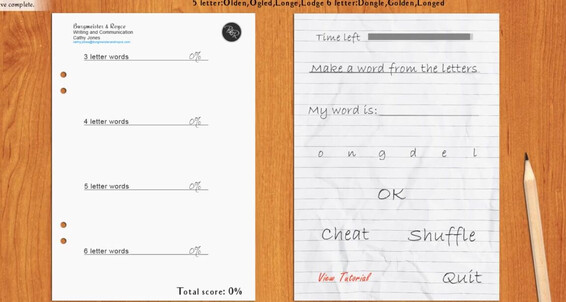 ve complete.
5 letter:Olden,Ogled,Longe,Lodge 6 letter:Dongle,Golden,Longed
Burgmeister & Royce
Writing and Communication
Cathy Jones
3 letter words 0%
4 letter words 0%
5 letter words 0%
6 letter words 0%
Total score: 0%
Time left
Make a word from the letters
My word is:
o n g d e l
OK
Cheat Shuffle
View Tutorial Quit